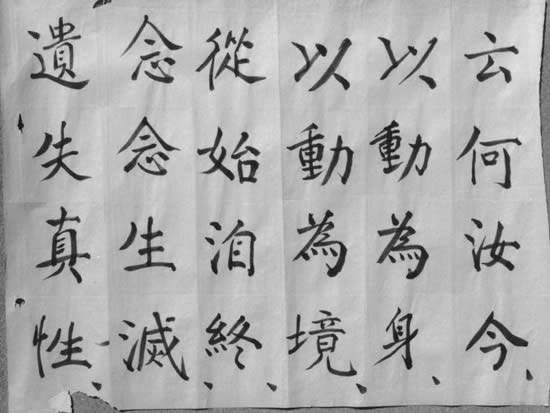 云何汝今、
以動為身、
以動為境、
從始洎終、
念念生滅、
遺失真性、